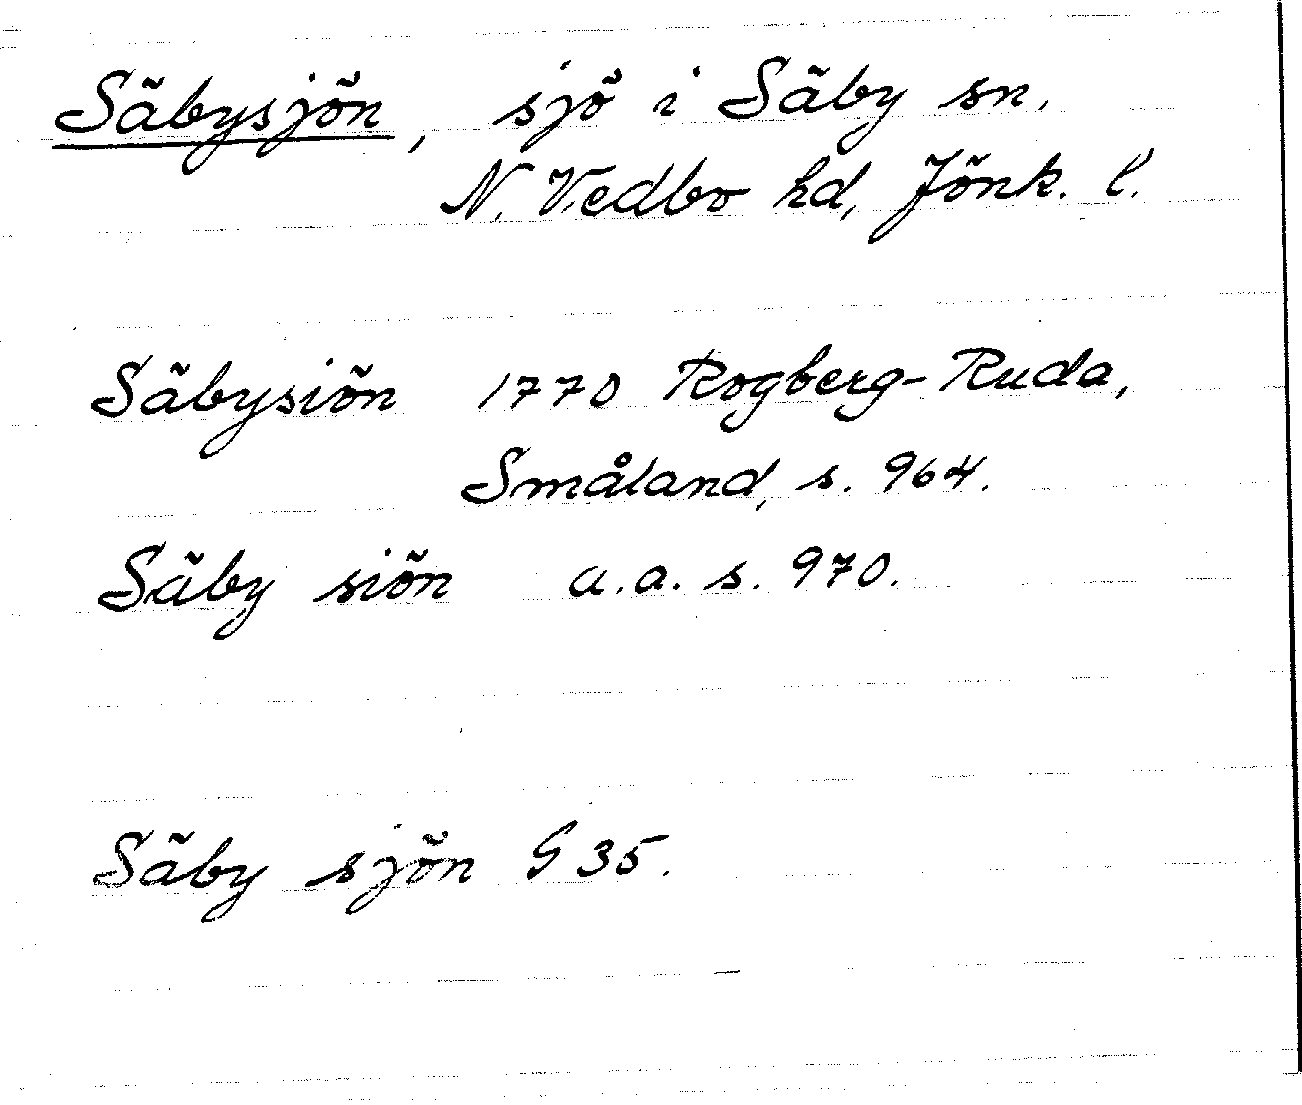 Säbysjön, sjö i Säby sn.
N. Vedbo hd, Jönk. l.
Säbysiön 1770 Rogberg-Ruda,
Småland, s. 964.
Säby siön a.a. s. 970.
Säby sjön G 35.